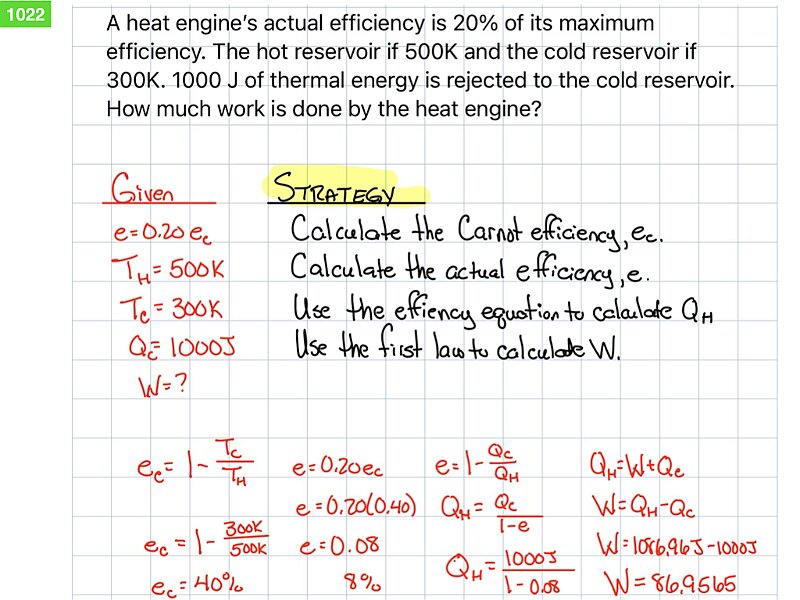 1022
A heat engine’s actual efficiency is 20% of its maximum
efficiency. The hot reservoir if 500K and the cold reservoir if
300K. 1000 J of thermal energy is rejected to the cold reservoir.
How much work is done by the heat engine?
Given
e=0.20 e_c
T_H = 500K
T_C = 300K
Q_C = 1000J
W=?
STRATEGY
Calculate the Carnot efficiency, e_c.
Calculate the actual efficiency, e.
Use the effiency equation to calculate Q_H
Use the first law to calculate W.
e_c = 1 - T_C/T_H
e_c = 1 - 300K/500K
e_c = 40%
e=0.20 e_c
e=0.20(0.40)
e=0.08
8%
e=1-Q_C/Q_H
Q_H = Q_C/1-e
Q_H = 1000J/1-0.08
Q_H=W+Q_C
W=Q_H-Q_C
W=1086.96J-1000J
W=86.9565